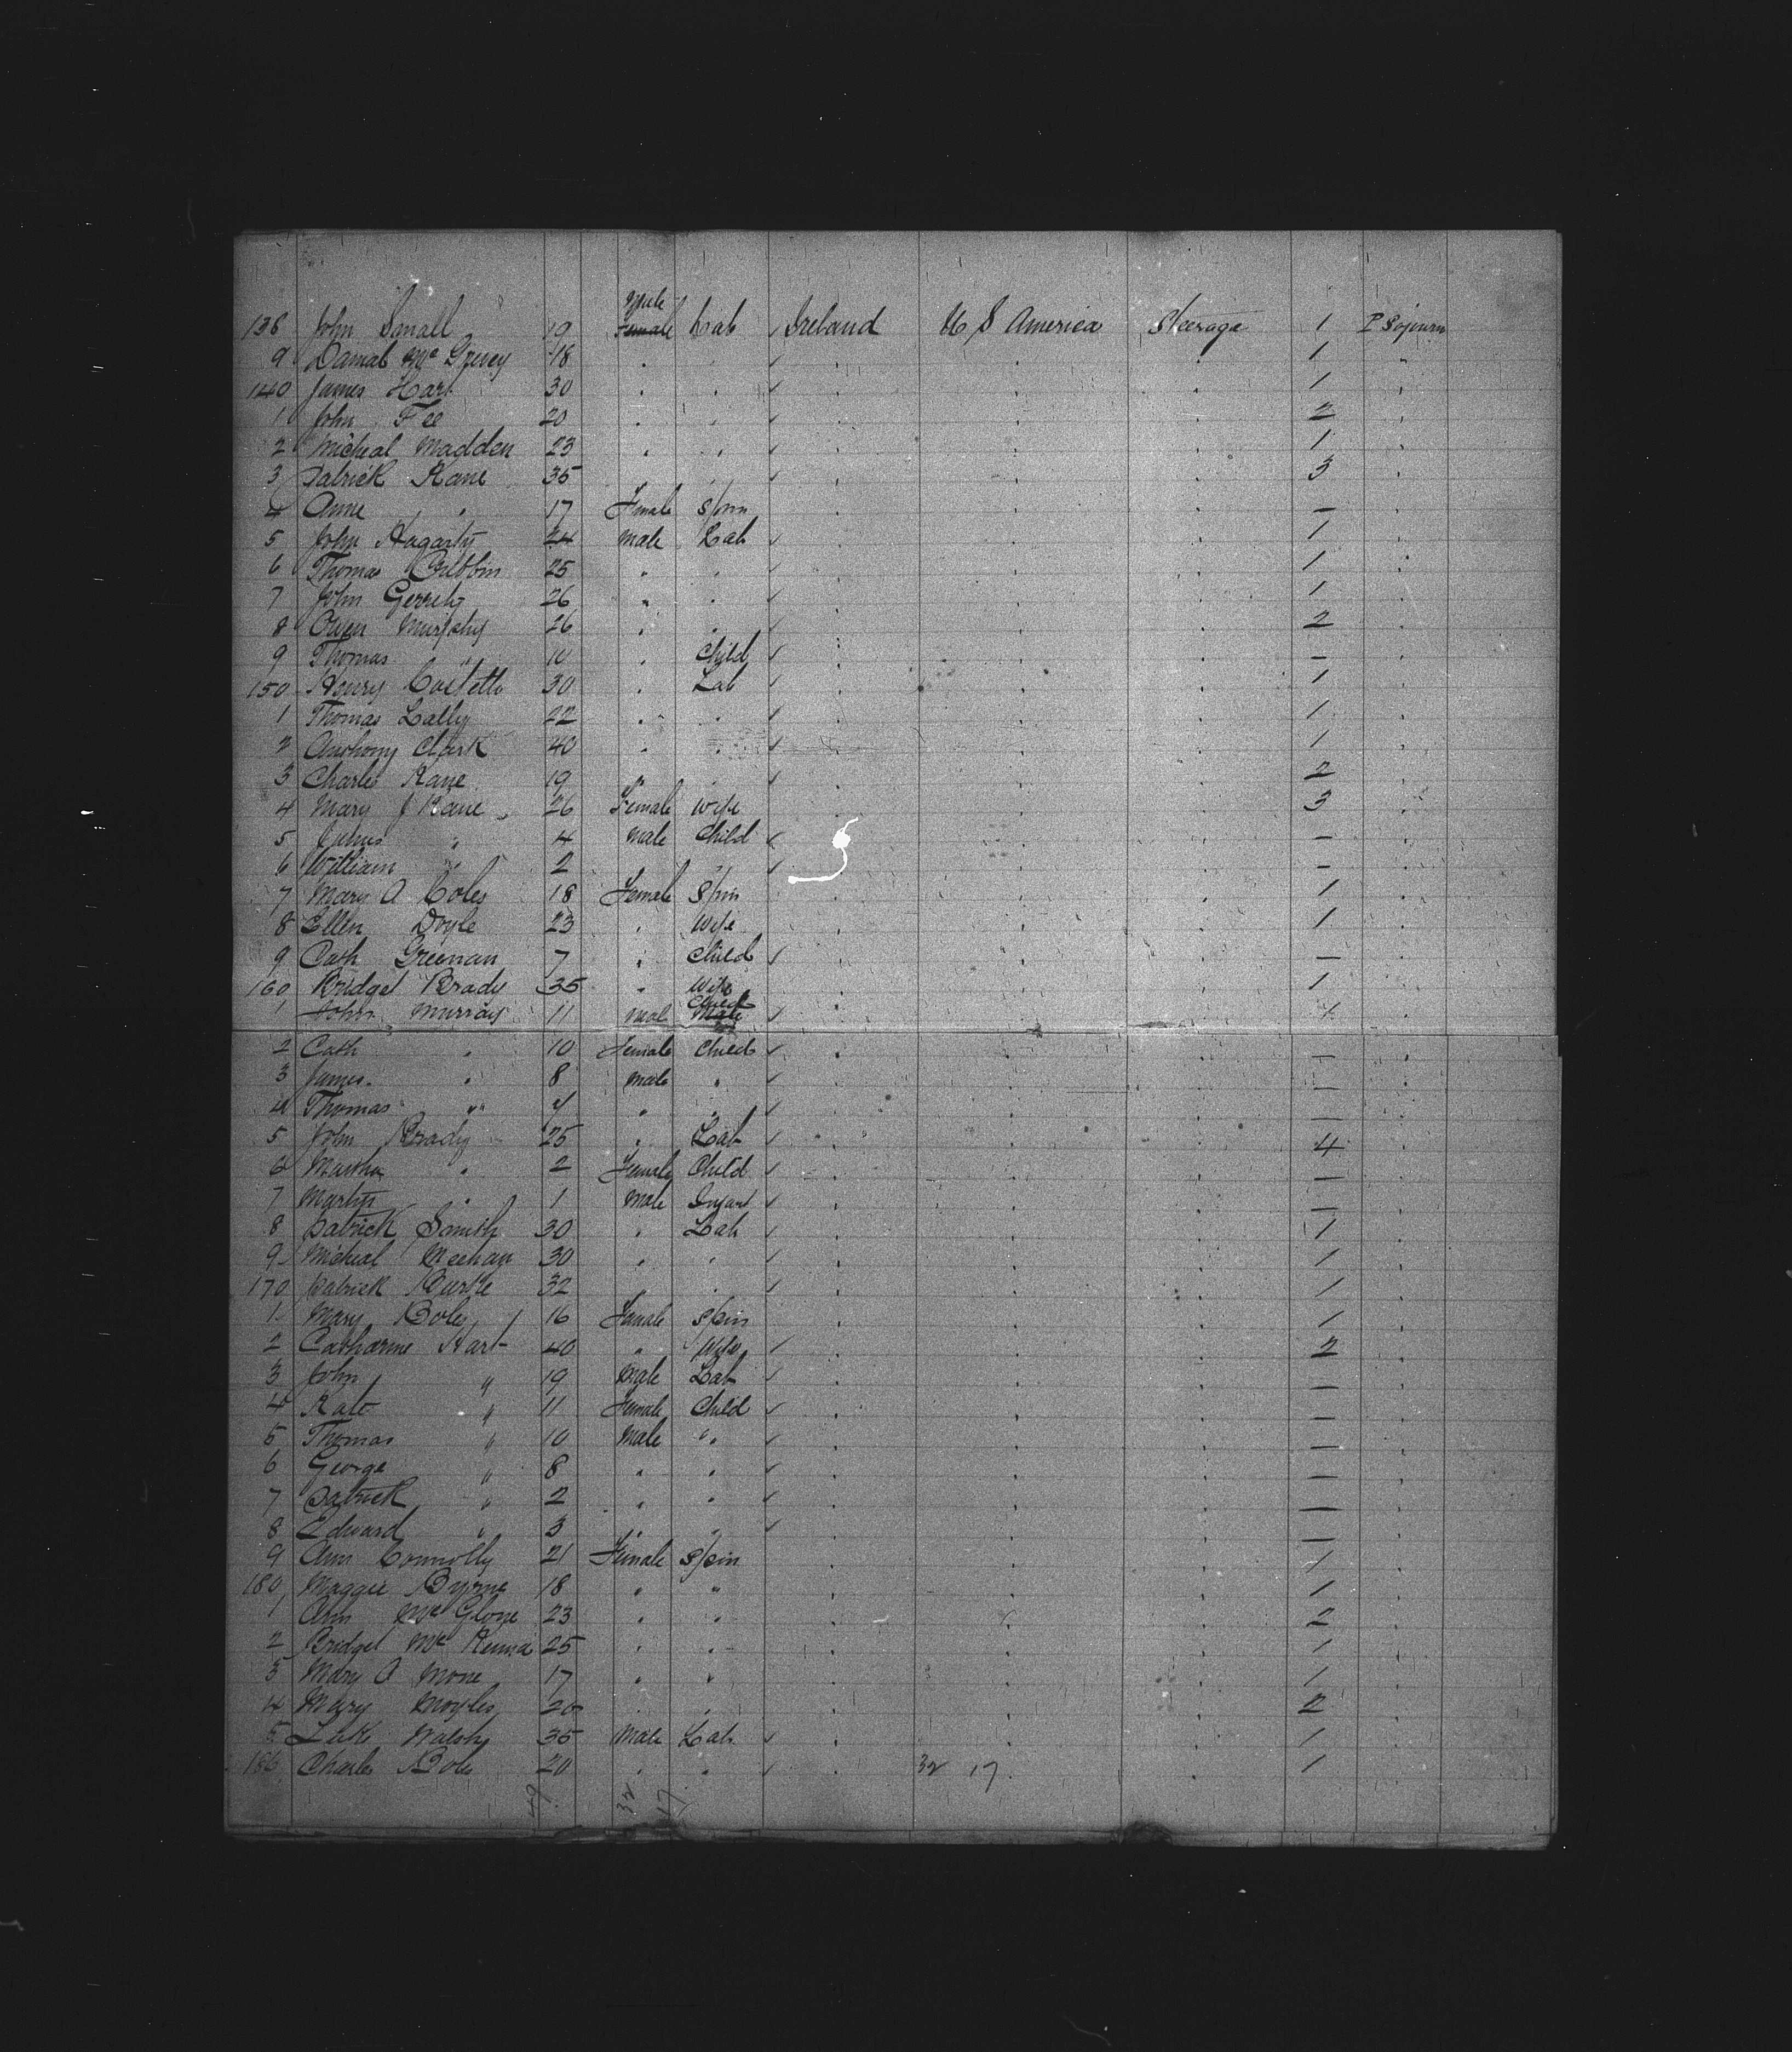 Male
138 John Small 19 Female Lab Ireland U S America Steerage 1 P Sojourn
9 Danial Mc Grevey 18 " " " " " 1 "
140 James Hart 30 " " " " " 1 "
1 John Fee 20 " " " " " 2 "
2 Micheal Madden 23 " " " " " 1 "
3 Patrick Kane 35 " " " " " 3 "
4 Anne " 17 Female Spin " " " — "
5 John Hagarty 24 Male Lab " " " 1 "
6 Thomas Gribbin 25 " " " " " 1 "
7 John Gerrity 26 " " " " " 1 "
8 Owen Murphy 26 " " " " " 2 "
9 Thomas " 10 " Child " " " — "
150 Henry Costello 30 " Lab " " " 1 "
1 Thomas Lally 22 " " " " " 1 "
2 Anthony Clark 40 " " " " " 1 "
3 Charles Kane 19 " " " " " 2 "
4 Mary J Kane 26 Female Wife " " " 3 "
5 " 4 Male Child " " " — "
6 William " 2 " " " " " — "
7 Mary A Coles 18 Female Spin " " " 1 "
8 Ellen Doyle 23 " Wife " " " 1 "
9 Cath Greenan 7 " Child " " " — "
160 Bridget Brady 35 " Wife " " " 1 "
Child
1 John Murray 11 Mal Male " " " "
2 Cath " 10 Female Child " " " — "
3 James " 8 Male " " " " — "
4 Thomas " 4 " " " " " — "
5 John Brady 25 " Lab " " " 4 "
6 Martha " 2 Female Child " " " — "
7 Martin " 1 Male Infant " " " — "
8 Patrick Smith 30 " Lab " " " 1 "
9 Micheal Meehan 30 " " " " " 1 "
170 Patrick Burke 32 " " " " " 1 "
1 Mary Boles 16 Female Spin " " " 1 "
2 Catharine Hart 40 " Wife " " " 2 "
3 John " 19 Male Lab " " " — "
4 Kate " 11 Female Child " " " — "
5 Thomas " 10 Male " " " " — "
6 George " 8 " " " " " — "
7 Patrick " 2 " " " " " — "
8 Edward " 3 " " " " " — "
9 Ann Connolly 21 Female Spin " " " 1 "
180 Maggie Byrne 18 " " " " " 1 "
1 Ann McGlone 23 " " " " " 2 "
2 Bridget Mc Kenna 25 " " " " " 1 "
3 Mary A Mone 17 " " " " " 1 "
4 Mary Moyles 20 " " " " " 2 "
5 Luke Walsh 35 Male Lab " " " 1 "
186 Charles Boles 20 " " " 32 17 " 1
49 32 17